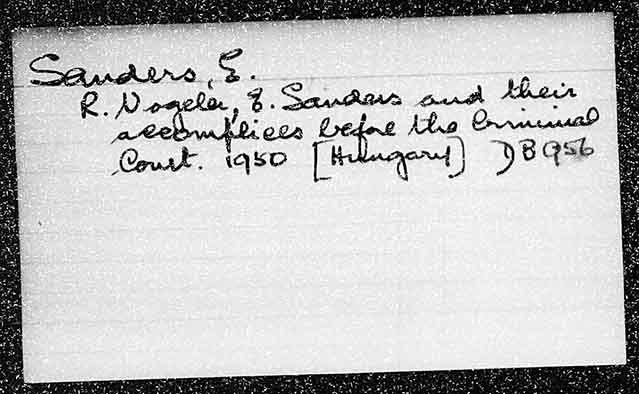 Sanders, E.
R. Vogeler, E. Sanders and their
accomplices before the Criminal
Court. 1950 [Hungary] DB956